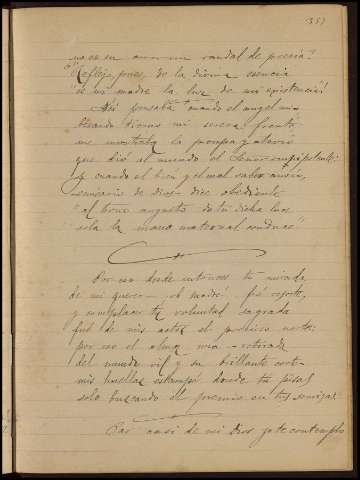 351
no es su amor un raudal de poesía?
Reflejo, pues, de la divina esencia
es mi madre la luz de mi existencia!
Así pensaba cuando el angel mio
besando tierno mi serena frente
me mostraba la pompa y atavio
que dió al mundo el Señor omnipotente;
y cuando el bien y el mal
de Dios dice obediente
"al trono augusto de tu dicha
sola la mano maternal conduce"
Por eso desde entonces tu mirada
de mi querer — oh madre! fué
y complacer tu voluntad sagrada
fué de mis actos el preciso norte;
por eso el alma mia — retirada
del mundo vil y su brillante corte —
mis huellas estampó donde tu pisas
solo buscando el premio en tus sonrisas
casi de mi Dios yo te contemplo